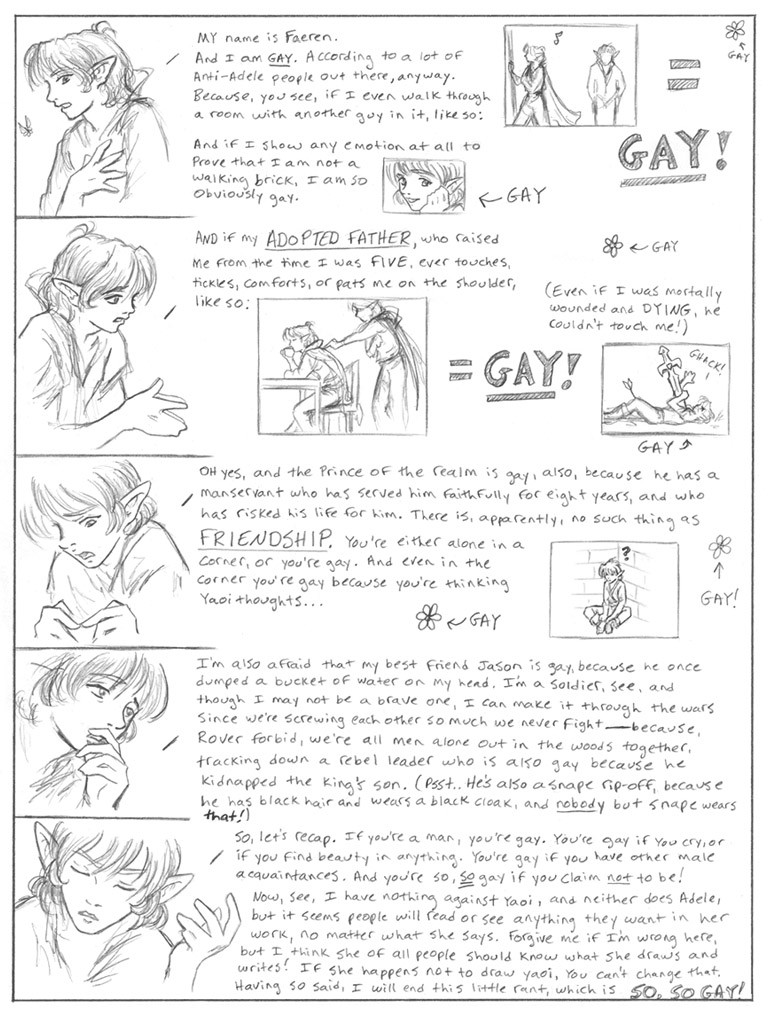 My name is Faeren.
And I am GAY. According to a lot of
Anti-Adele people out there, anyway.
Because, you see, if I even walk through
a room with another guy in it, like so:
=
GAY!
GAY
And if I show any emotion at all to
Prove that I am not a
walking brick, I am so
obviously gay.
GAY
AND if my ADOPTED FATHER, who raised
me from the time I was FIVE, ever touches,
tickles, comforts, or pats me on the shoulder,
like so:
= GAY!
GAY
(Even if I was mortally
wounded and DYING, he
couldn't touch me!)
GHACK!
GAY
OH yes, and the Prince of the realm is gay, also, because he has a
manservant who has served him faithfully for eight years, and who
has risked his life for him. There is, apparently, no such thing as
FRIENDSHIP. You're either alone in a
corner, or you're gay. And even in the
corner you're gay because you're thinking
Yaoi thoughts...
GAY
?
GAY!
I'm also afraid that my best friend Jason is gay, because he once
dumped a bucket of water on my head. I'm a soldier, see, and
though I may not be a brave one, I can make it through the wars
since we're screwing each other so much we never fight — because,
Rover forbid, we're all men alone out in the woods together,
tracking down a rebel leader who is also gay because he
kidnapped the king's son. (Psst.. He's also a snape rip-off, because
he has black hair and wears a black cloak, and nobody but snape wears
that!)
So, let's recap. If you're a man, you're gay. You're gay if you cry, or
if you find beauty in anything. You're gay if you have other male
acquaintances. And you're so, so gay if you claim not to be!
Now, see, I have nothing against Yaoi, and neither does Adele,
but it seems people will read or see anything they want in her
work, no matter what she says. Forgive me if I'm wrong here,
but I think she of all people should know what she draws and
writes! If she happens not to draw yaoi, you can't change that.
Having so said, I will end this little rant, which is SO, SO GAY!